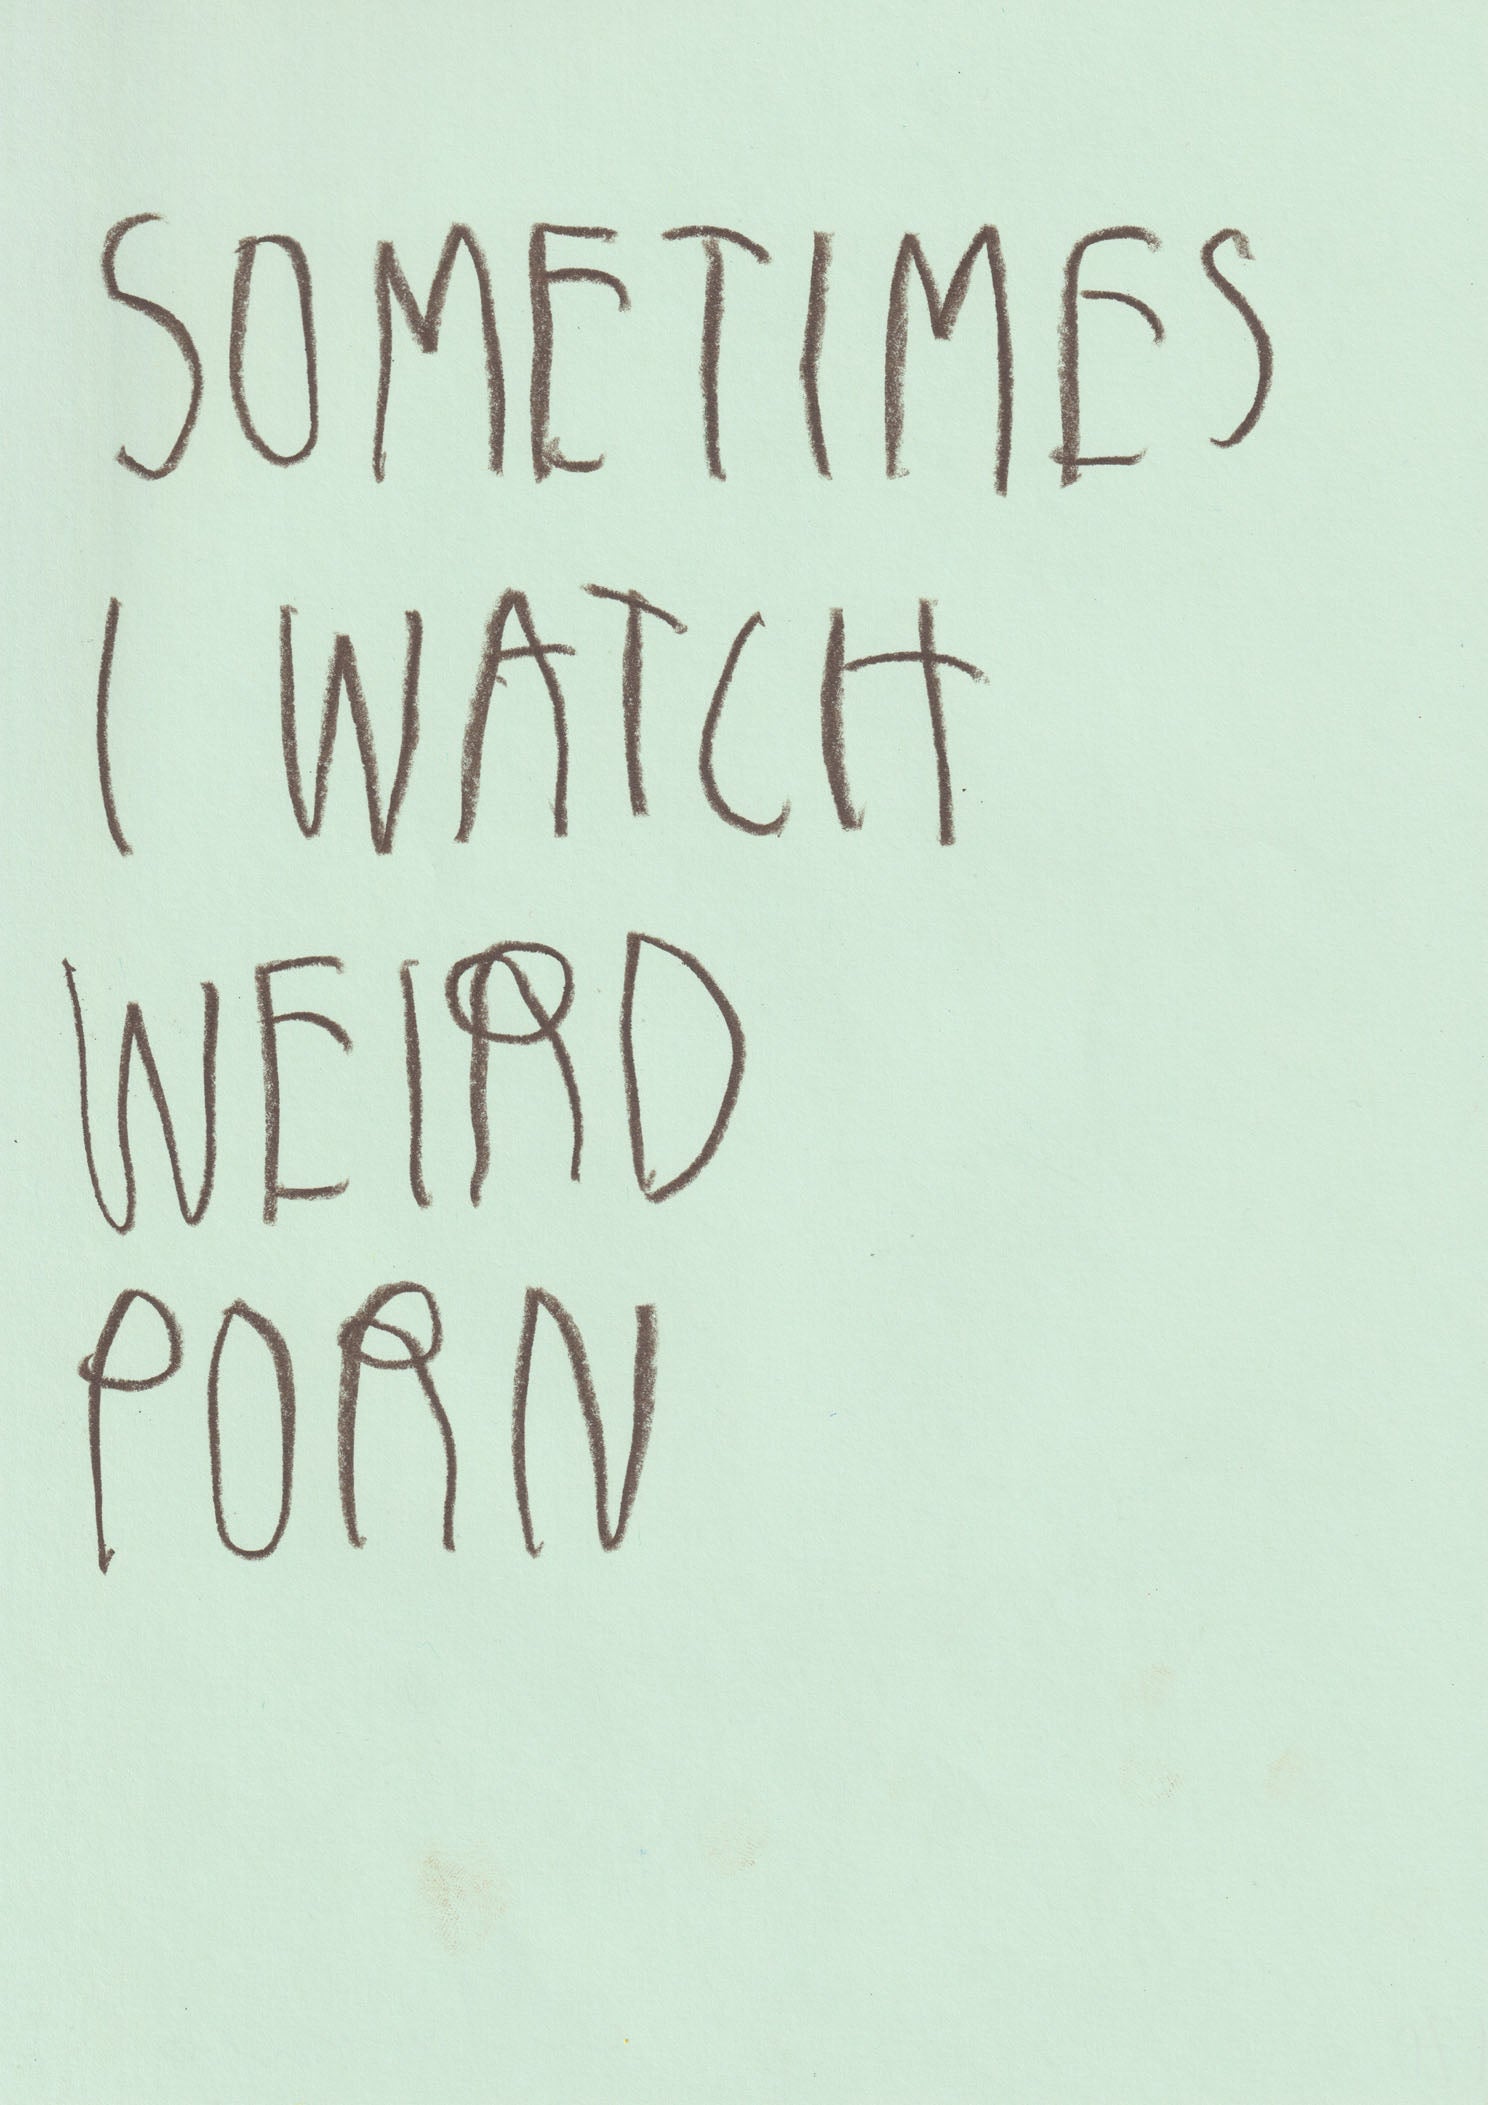 SOMETIMES
I WATCH
WEIRD
PORN